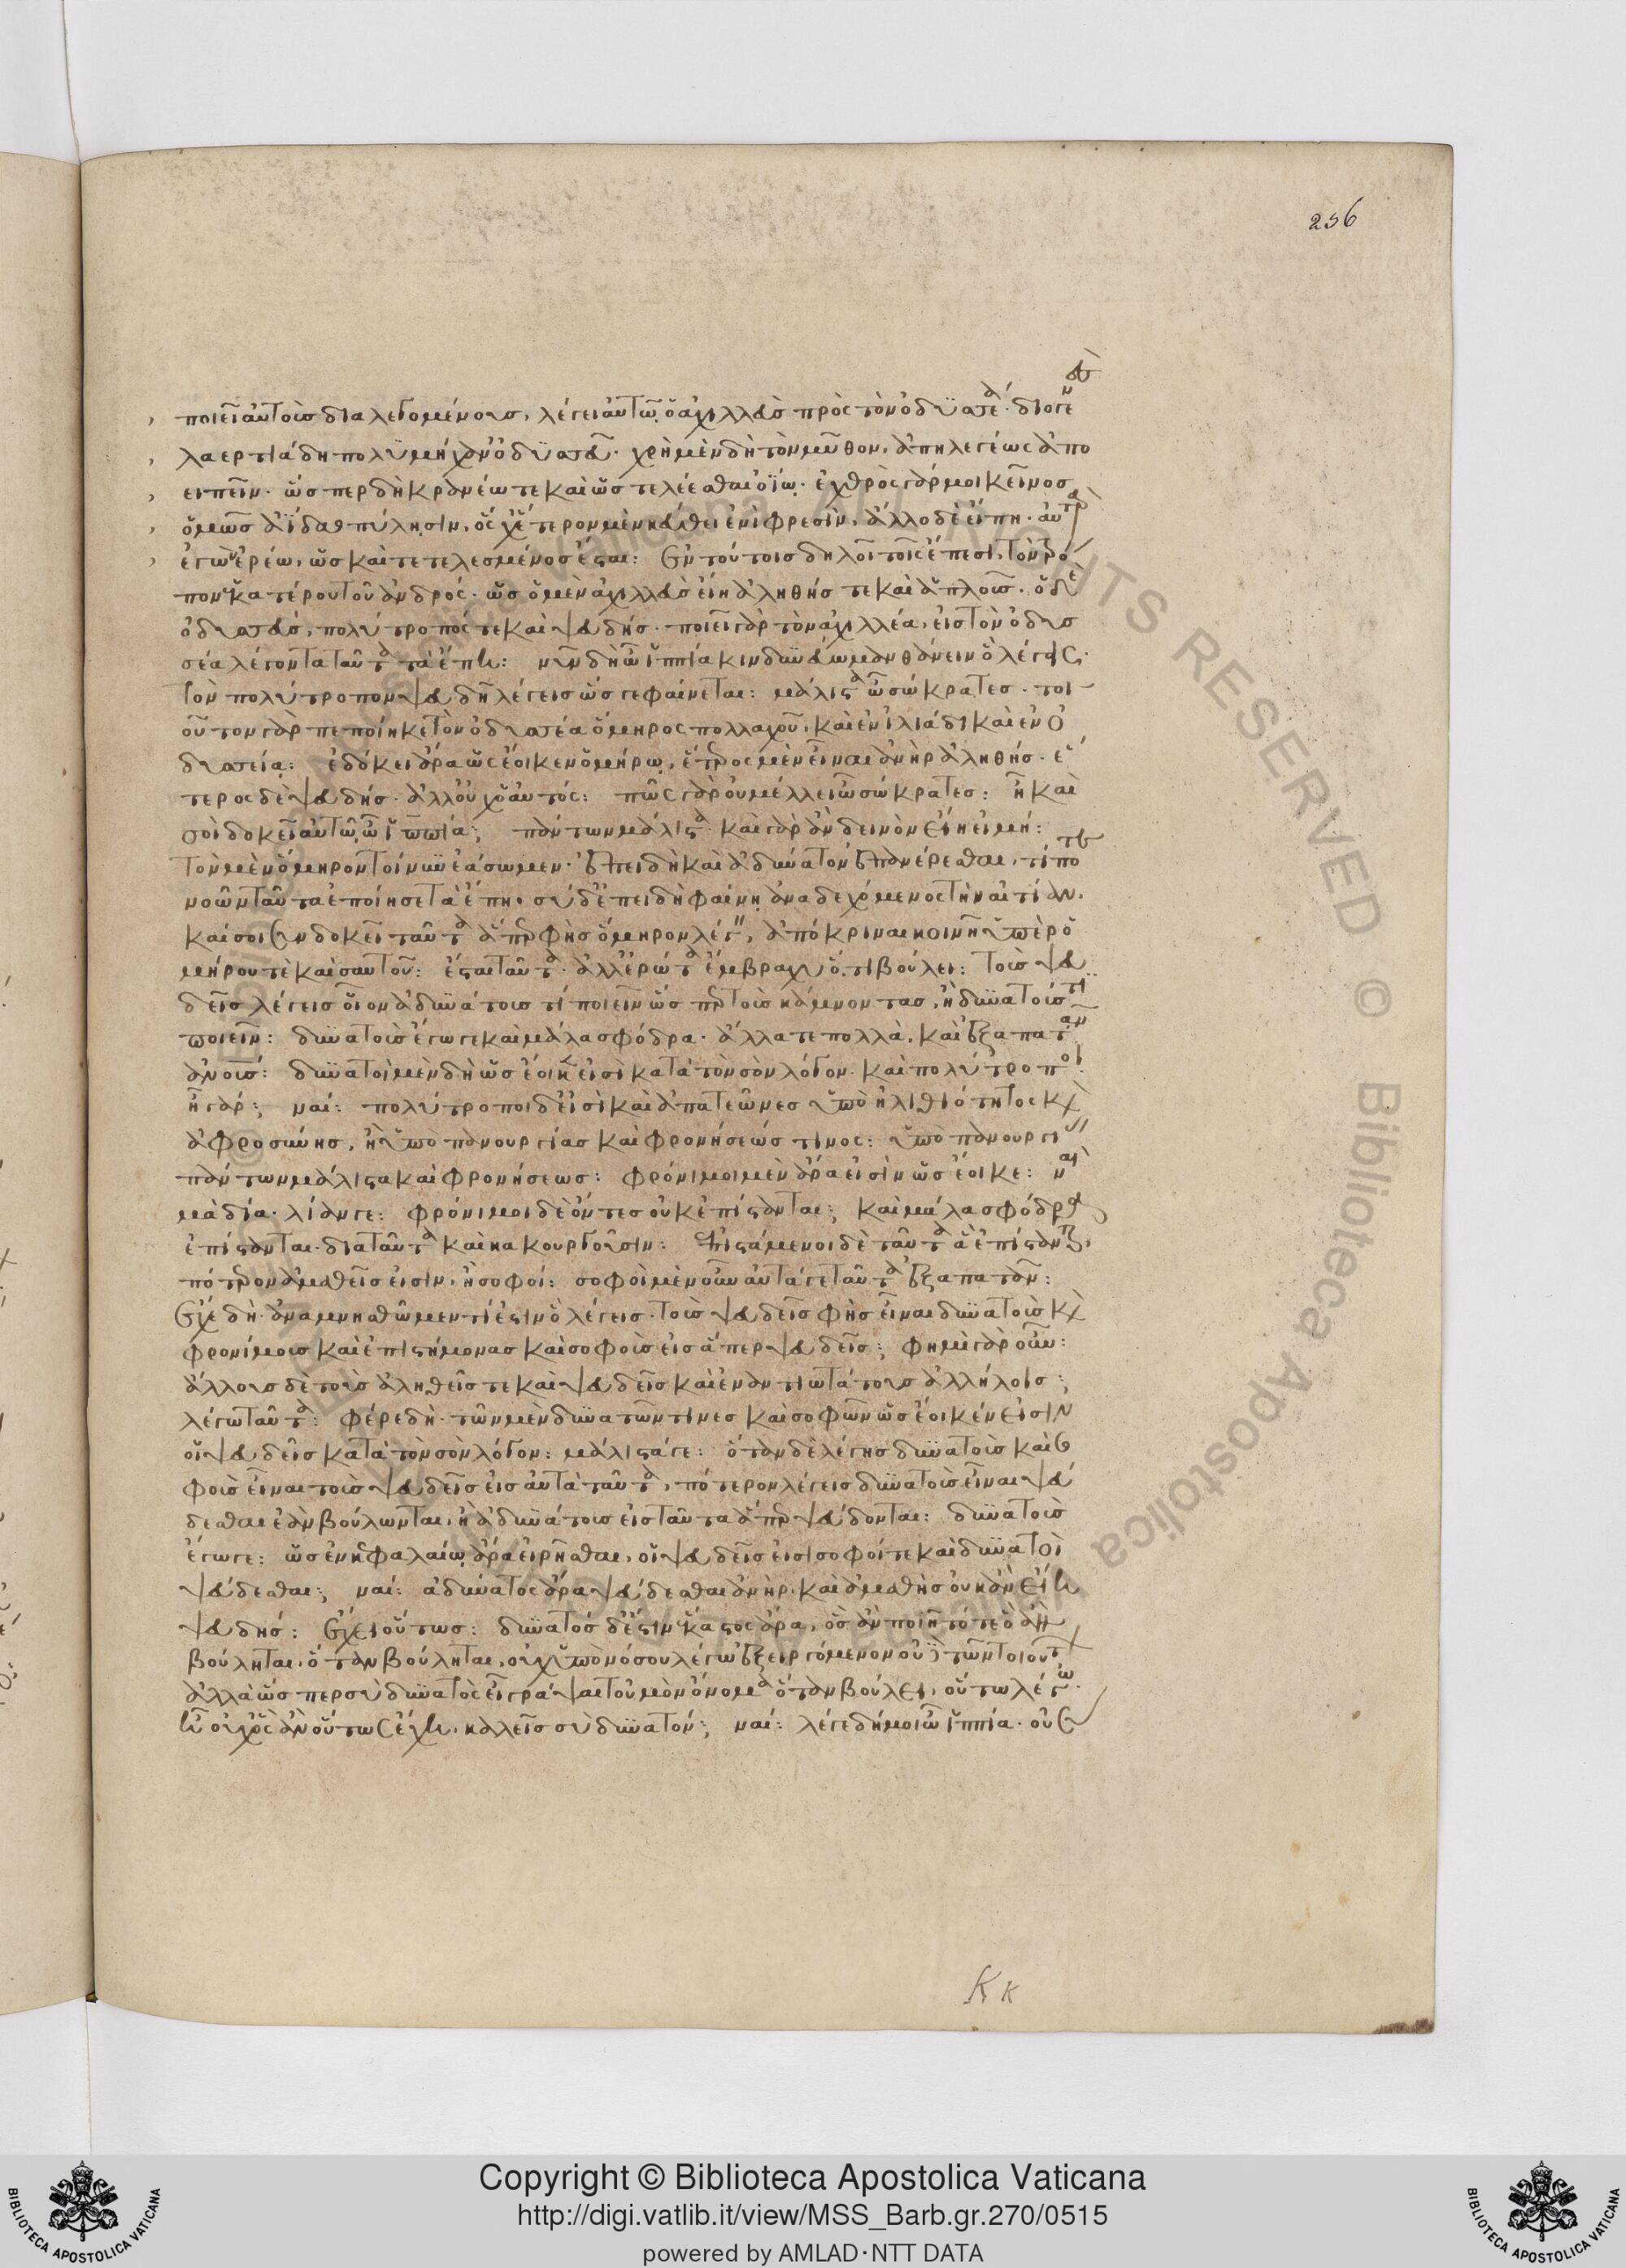 256
ποιεῖ αὐτοὺς διαλεγομένους, λέγει αὐτῶ ὁ ἀχιλλεὺς πρὸς τὸν ὀδυσσέα· διογενὲς
λαερτιάδη πολυμήχαν' ὀδυσσεῦ· χρὴ μὲν δὴ τὸν μῦθον, ἀπηλεγέως ἀπο
ειπεῖν· ὥσπερ δὴ κρανέω τε καὶ ὡς τελέεσθαι ὀΐω· ἐχθρὸς γάρ μοι κεῖνος
ὁμῶς ἀΐδαο πύλησιν, ὅς χ' ἕτερον μὲν κεύθει ἐνὶ φρεσὶν, ἄλλο δὲ εἴπη· αὐτὰρ
ἐγὼν ἐρέω, ὡς καὶ τετελεσμένος ἔσται: ἐν τούτοις δηλοῖ τοῖς ἔπεσι, τὸν τρό
πον ἑκατέρου τοῦ ἀνδρός· ὡς ὁ μὲν ἀχιλλεὺς εἴη ἀληθής τε καὶ ἁπλοῦς· ὁ δὲ
ὀδυσσεὺς, πολύτροπός τε καὶ ψευδής· ποιεῖ γὰρ τὸν ἀχιλλέα, εἰς τὸν ὀδυσ
σέα λέγοντα ταῦτα τὰ ἔπη: νῦν δὴ ὦ ἱππία κινδυνεύω μανθάνειν ὃ λέγεις·
τὸν πολύτροπον ψευδῆ λέγεις ὥς γε φαίνεται: μάλιστα ὦ σώκρατες· τοι
οῦτον γὰρ πεποίηκε τὸν ὀδυσσέα ὅμηρος πολλαχοῦ, καὶ ἐν ἰλιάδι καὶ ἐν ὀ
δυσσεία: ἐδόκει ἄρα ὡς ἔοικεν ὁμήρω, ἕτερος μὲν εἶναι ἀνὴρ ἀληθής· ἕ
τερος δὲ ψευδής· ἀλλ' οὐχ ὁ αὐτός: πῶς γὰρ οὐ μέλλει ὦ σώκρατες: ἦ καὶ
σοὶ δοκεῖ αὐτῶ, ὦ ἱππία; πάντων μάλιστα· καὶ γὰρ ἂν δεινὸν εἴη εἰ μή:
τὸν μὲν ὅμηρον τοίνυν ἐάσωμεν· ἐπειδὴ καὶ ἀδύνατον ἐπανερέσθαι, τί ποτε
νοῶν ταῦτα ἐποίησε τὰ ἔπη· σὺ δ' ἐπειδὴ φαίνη ἀναδεχόμενος τὴν αἰτίαν.
καί σοι συνδοκεῖ ταῦτα ἅπερ φὴς ὅμηρον λέγειν, ἀπόκριναι κοινῆ ὑπὲρ ὁ
μήρου τὲ καὶ σαυτοῦ: ἔσται ταῦτα· ἀλλ' ἐρώτα ἔμβραχυ ὅ,τι βούλει: τοὺς ψευ
δεῖς λέγεις οἷον ἀδυνάτους τί ποιεῖν ὥσπερ τοὺς κάμνοντας, ἢ δυνατούς τι
ποιεῖν: δυνατοὺς ἔγωγε καὶ μάλα σφόδρα· ἄλλα τε πολλὰ, καὶ ἐξαπατᾶν
ἀνους: δυνατοὶ μὲν δὴ ὡς ἔοικεν εἰσὶ κατὰ τὸν σὸν λόγον· καὶ πολύτροποι·
ἦ γάρ; ναί: πολύτροποι δ' εἰσὶ καὶ ἀπατεῶνες ὑπὸ ἠλιθιότητος καὶ
ἀφροσύνης, ἢ ὑπὸ πανουργίας καὶ φρονήσεώς τινος: ὑπὸ πανουργίας
πάντων μάλιστα καὶ φρονήσεως: φρόνιμοι μὲν ἄρα εἰσὶν ὡς ἔοικε: ναὶ
μὰ δία· λίαν γε: φρόνιμοι δὲ ὄντες οὐκ ἐπίστανται; καὶ μάλα σφόδρα
ἐπίστανται· διὰ ταῦτα καὶ κακουργοῦσιν: ἐπιστάμενοι δὲ ταῦτα ἃ ἐπίστανται,
πότερον ἀμαθεῖς εἰσιν, ἢ σοφοί: σοφοὶ μὲν οὖν αὐτά γε ταῦτα ἐξαπατᾶν:
ἔχε δή· ἀναμνησθῶμεν τί ἐστιν ὃ λέγεις· τοὺς ψευδεῖς φὴς εἶναι δυνατοὺς καὶ
φρονίμους καὶ ἐπιστήμονας καὶ σοφοὺς εἰς ἅπερ ψευδεῖς; φημὶ γὰρ οὖν:
ἄλλους δὲ τοὺς ἀληθεῖς τε καὶ ψευδεῖς καὶ ἐναντιωτάτους ἀλλήλοις;
λέγω ταῦτα: φέρε δή· τῶν μὲν δυνατῶν τινες καὶ σοφῶν ὡς ἔοικέν εἰσιν
οἱ ψευδεῖς κατὰ τὸν σὸν λόγον: μάλιστά γε: ὅταν δὲ λέγης δυνατοὺς καὶ σο
φοὺς εἶναι τοὺς ψευδεῖς εἰς αὐτὰ ταῦτα, πότερον λέγεις δυνατοὺς εἶναι ψεύ
δεσθαι ἐὰν βούλωνται, ἢ ἀδυνάτους εἰς ταῦτα ἅπερ ψεύδονται: δυνατοὺς
ἔγωγε: ὡς ἐν κεφαλαίω ἄρα εἰρῆσθαι, οἱ ψευδεῖς εἰσι σοφοί τε καὶ δυνατοὶ
ψεύδεσθαι; ναί: ἀδύνατος ἄρα ψεύδεσθαι ἀνὴρ, καὶ ἀμαθὴς οὐκ ἂν εἴη
ψευδής: ἔχει οὕτως: δυνατὸς δέ ἐστιν ἕκαστος ἄρα, ὃς ἂν ποιῆ τότε ὃ ἂν
βούληται, ὅταν βούληται, οὐχ ὑπὸ νόσου λέγω ἐξειργόμενον οὐδὲ τῶν τοιούτων
ἀλλὰ ὥσπερ σὺ δυνατὸς εἶ γράψαι τοὐμὸν ὄνομα ὅταν βούλει, οὕτω λέγω·
ἢ οὐχ ὃς ἂν οὕτως ἔχη, καλεῖς σὺ δυνατόν; ναί: λέγε δή μοι ὦ ἱππία· οὐ σὺ
Kk
Copyright © Biblioteca Apostolica Vaticana
http://digi.vatlib.it/view/MSS_Barb.gr.270/0515
powered by AMLAD·NTT DATA